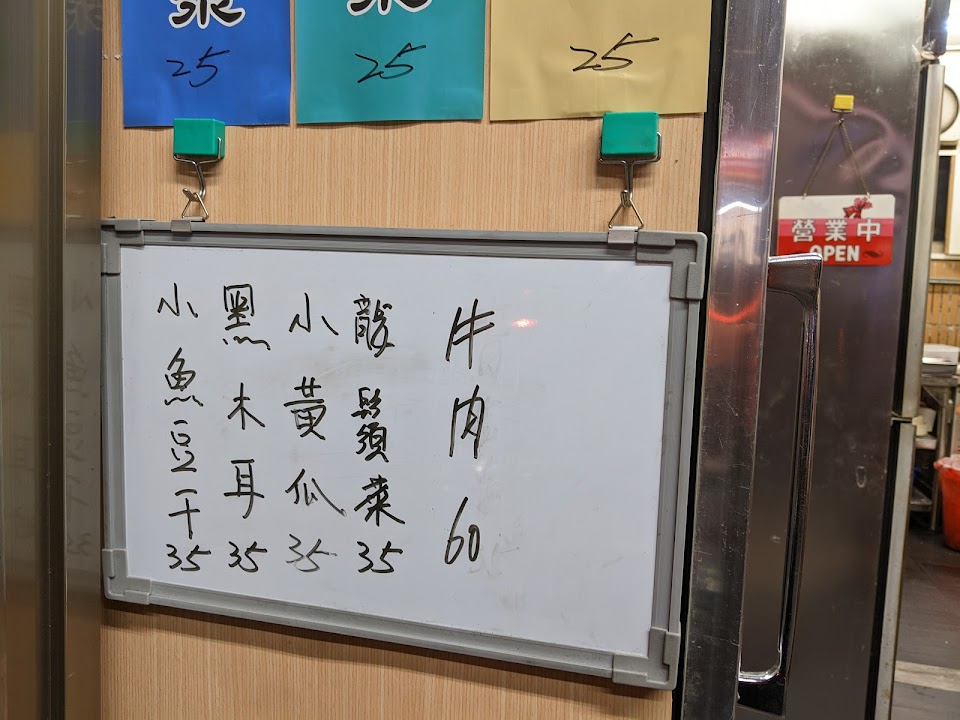 25
25
25
牛肉 60
龍鬚菜 35
小黃瓜 35
黑木耳 35
小魚豆干 35
營業中
OPEN